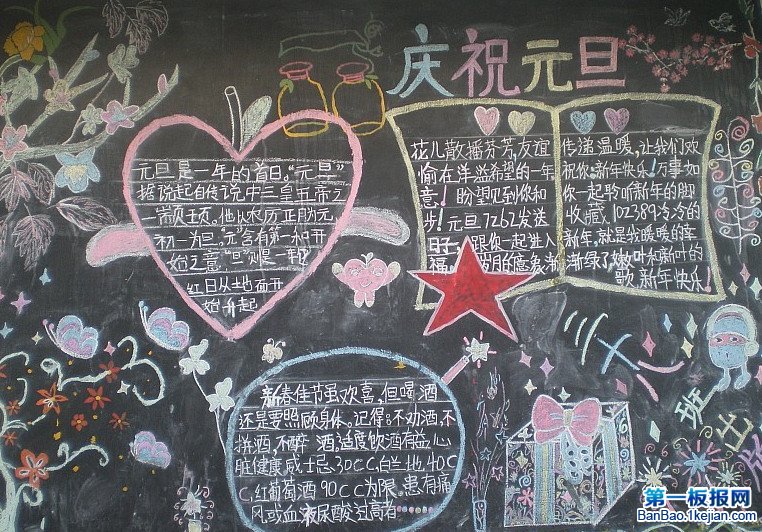 庆祝元旦
元旦是一年的首日,“元旦”
据说起自传说中三皇五帝之
一颛顼,他以农历正月为元,
初一为旦。“元”含有第一和开
始之意“旦”则是一轮
红日从地面开
始升起
花儿散播芬芳,友谊
愉在洋溢希望的一年
意!盼望见到你和
步!元旦7262发送
旺 跟你一起进入
福 岁月的意象渐
传递温暖,让我们欢
祝你:新年快乐!万事如
你一起聆听新年的脚
收藏,102389冷冷的
新年,就是我暖暖的幸
渐绿了嫩叶和新叶的
歌,新年快乐!
新春佳节虽欢喜,但喝酒
还是要照顾身体。记得:不劝酒,不
拼酒,不醉酒,适度饮酒有益心
脏健康,威士忌30CC,白兰地40C
C,红葡萄酒90CC为限。患有痛
风或血液尿酸过高者
三六班出
第一板报网
BanBao.1kejian.com